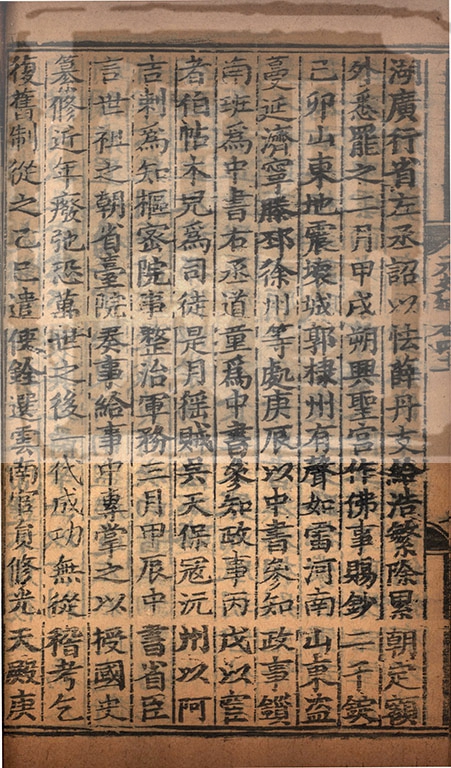 湖廣行省左丞詔以怯薛丹支給浩繁除累朝定額
外悉罷之二月甲戌朔興聖宮作佛事賜鈔二千錠
己卯山東地震壊城郭棣州有聲如雷河南山東盗
蔓延濟寧滕邳徐州等處庚辰以中書參知政事鎖
南班為中書右丞道童爲中書參知政事丙戌以宦
者伯帖木兒爲司徒是月徭賊吳天保寇沅州以阿
吉剌為知樞密院事整治軍務三月甲辰中書省臣
言世祖之朝省臺院奏事給事中專掌之以授國史
纂修近年廢弛恐萬世之後一代成功無從稽考乞
復舊制從之乙巳遣使銓選雲南官員修光天殿庚